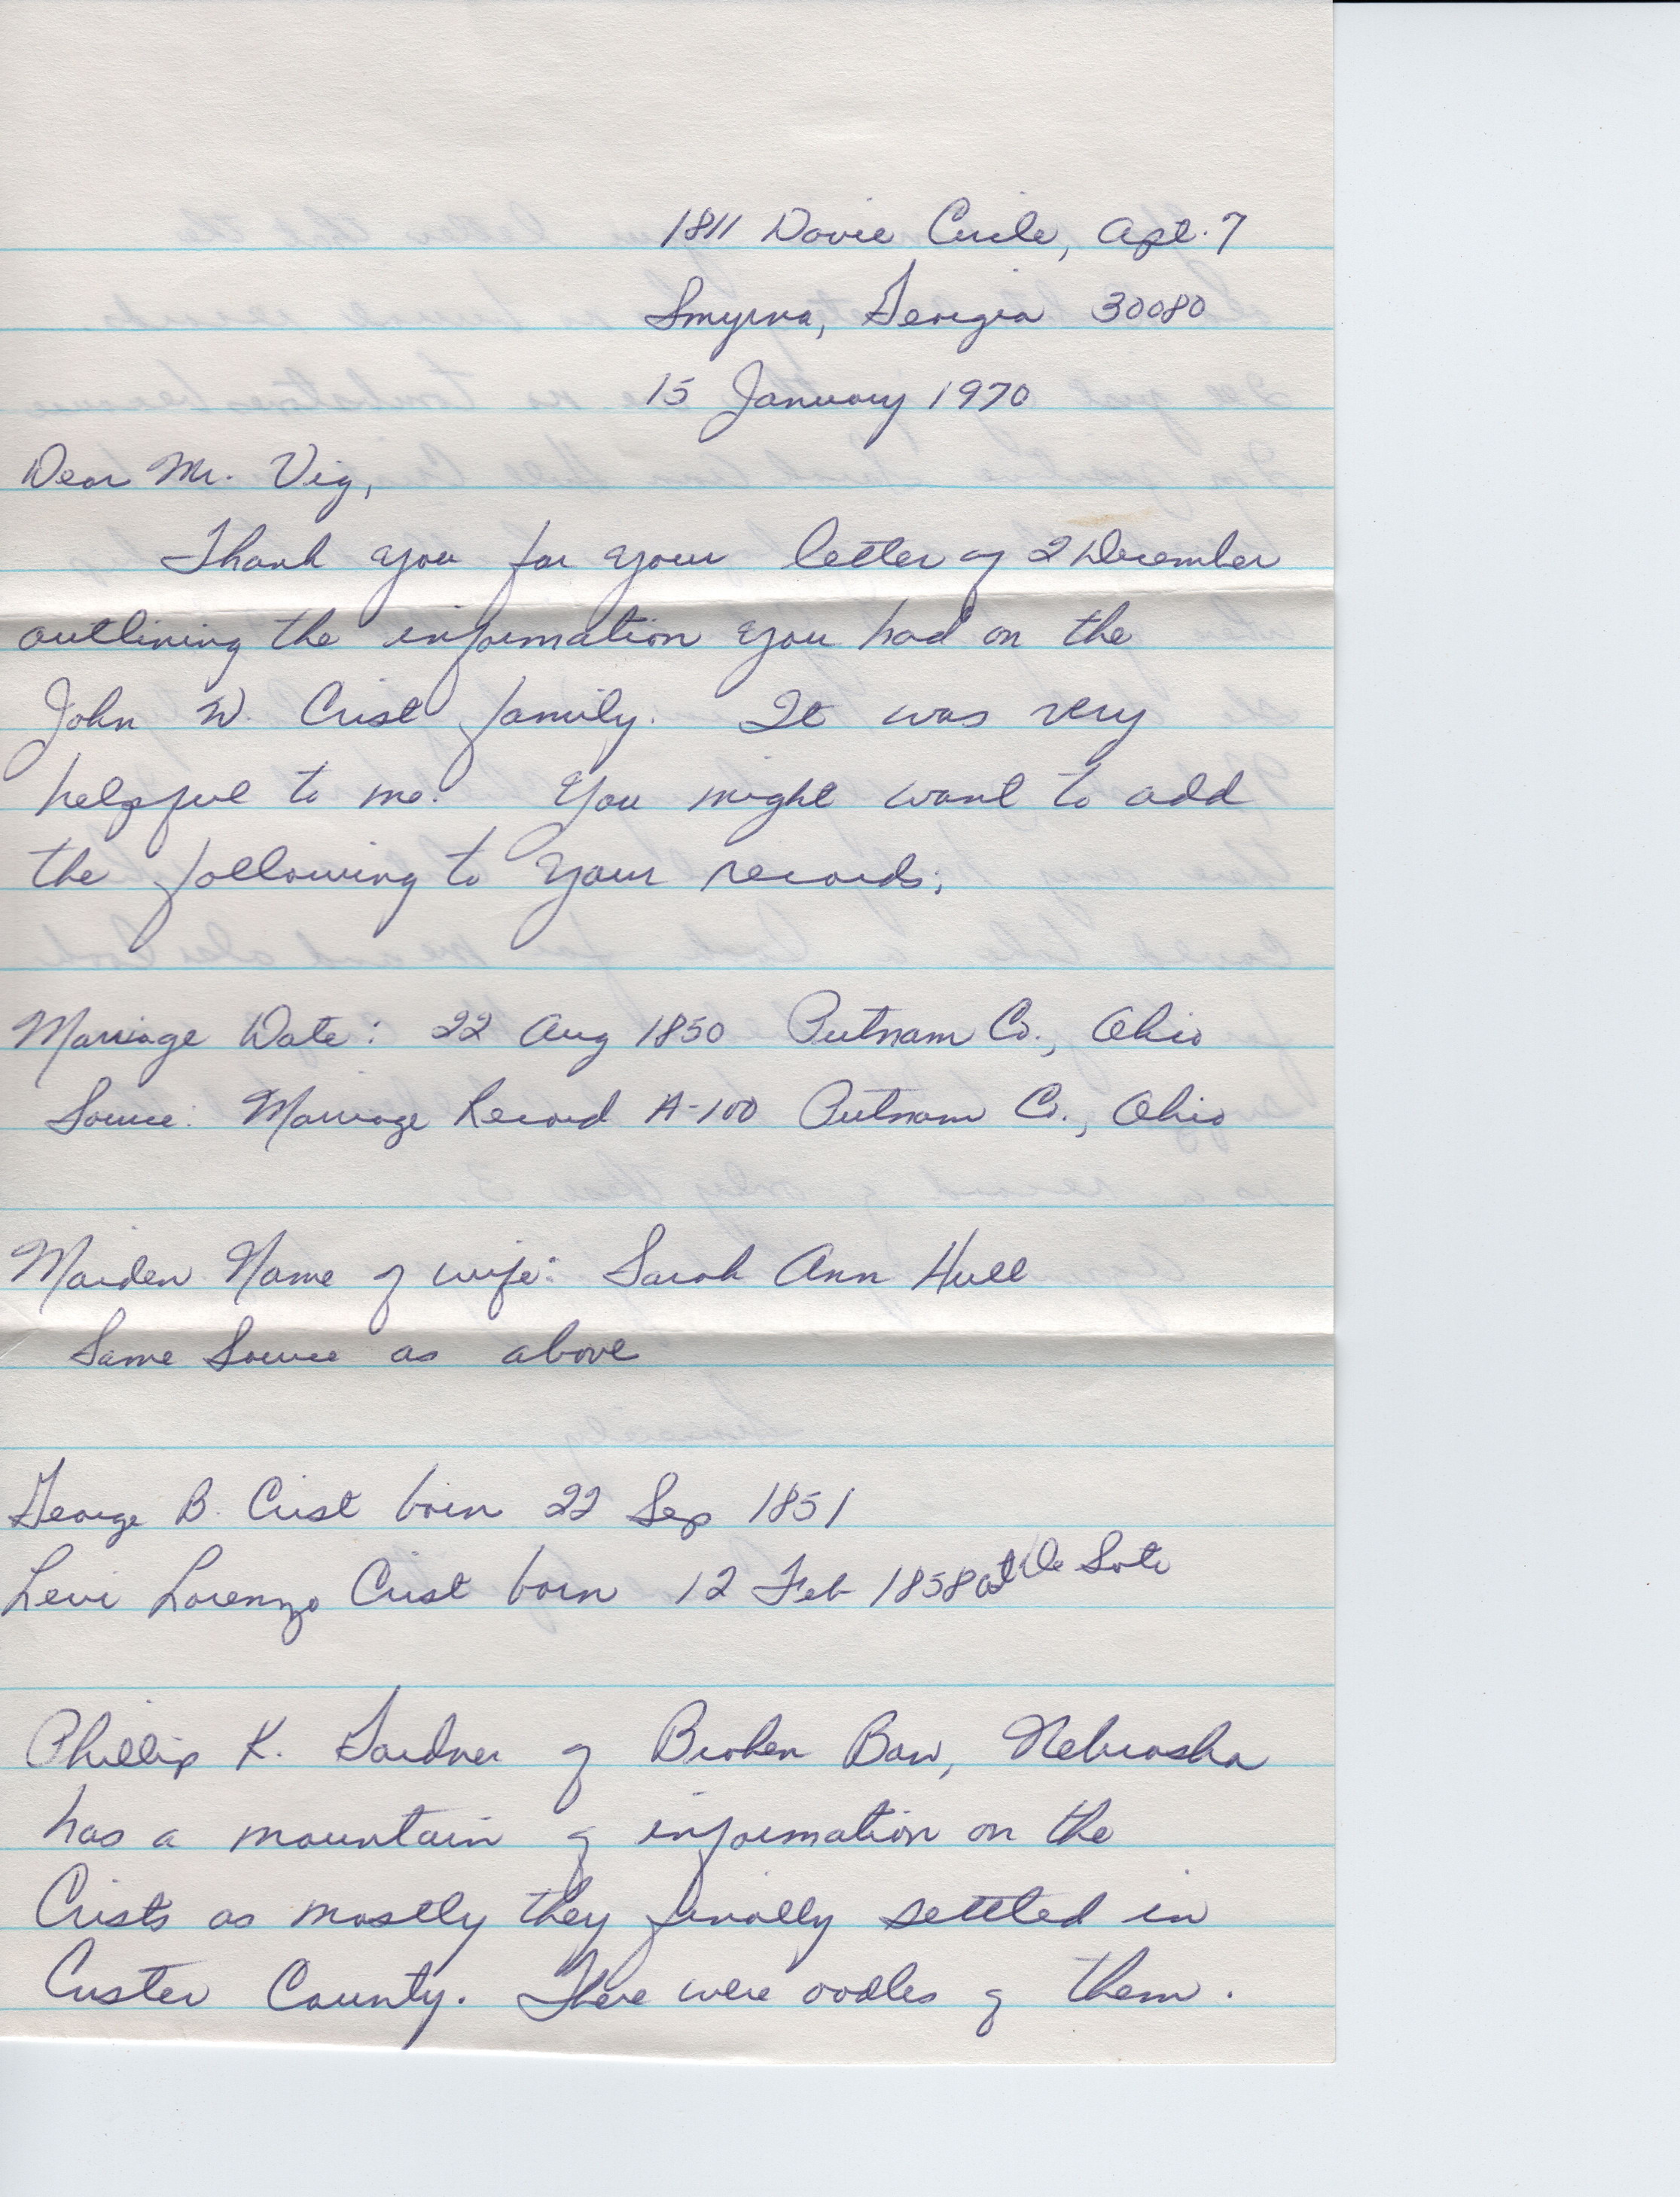 1811 Davie Circle, Apt. 7
Smyrna, Georgia 30080
15 January 1970
Dear Mr. Vig,
Thank you for your letter of 2 December
outlining the information you had on the
John W. Crist family. It was very
helpful to me. You might want to add
the following to your records:
Marriage Date: 22 Aug 1850 Putnam Co., Ohio
Source: Marriage Record A-100 Putnam Co., Ohio
Maiden Name of wife: Sarah Ann Hull
Same Source as above
George B. Crist born 22 Sep 1851
Levi Lorenzo Crist born 12 Feb 1858 at De Soto
Phillip K. Gardner of Broken Bow, Nebraska
has a mountain of information on the
Crists as mostly they finally settled in
Custer County. There were oodles of them.